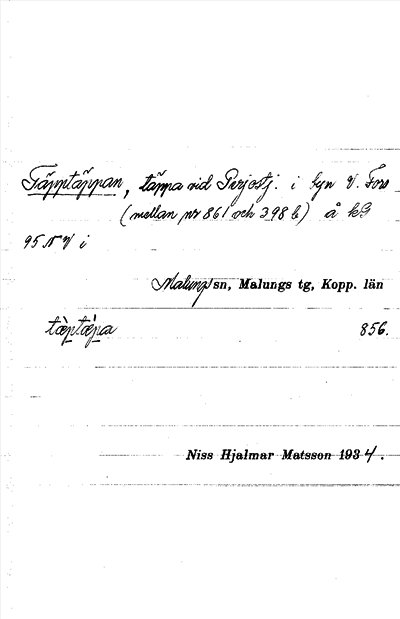 Täpptäppan, täppa vid Perjostj. i byn V. Fors
(mellan nr 861 och 398 b) å kG
95 NV i
Malungs sn, Malungs tg, Kopp. län
tæ̀ptæ̀pa 856.
Niss Hjalmar Matsson 1934.